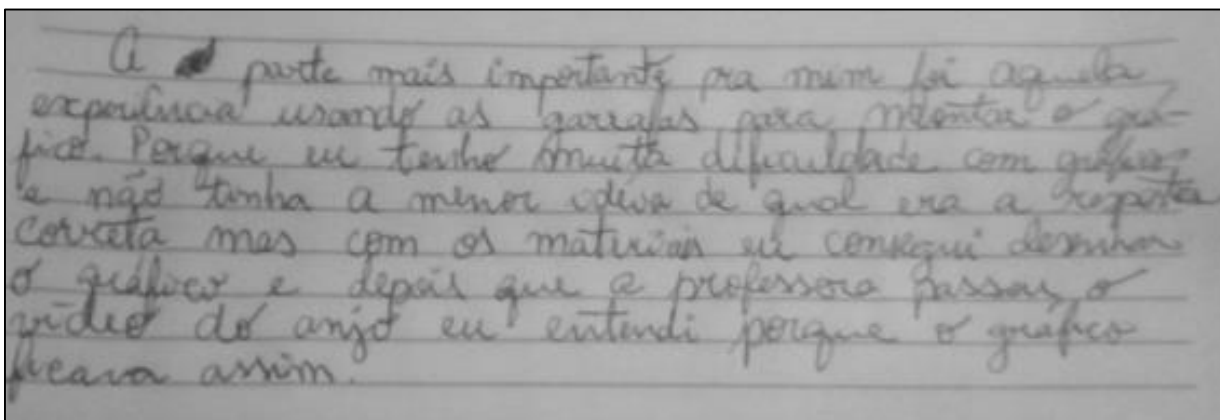 A parte mais importante pra mim foi aquela
experiência usando as garrafas para montar o grá-
fico. Porque eu tenho muita dificuldade com gráfico
e não tinha a menor ideia de qual era a resposta
correta mas com os materiais eu consegui desenhar
o gráfico e depois que a professora passou o
vídeo do anjo eu entendi porque o gráfico
ficava assim.